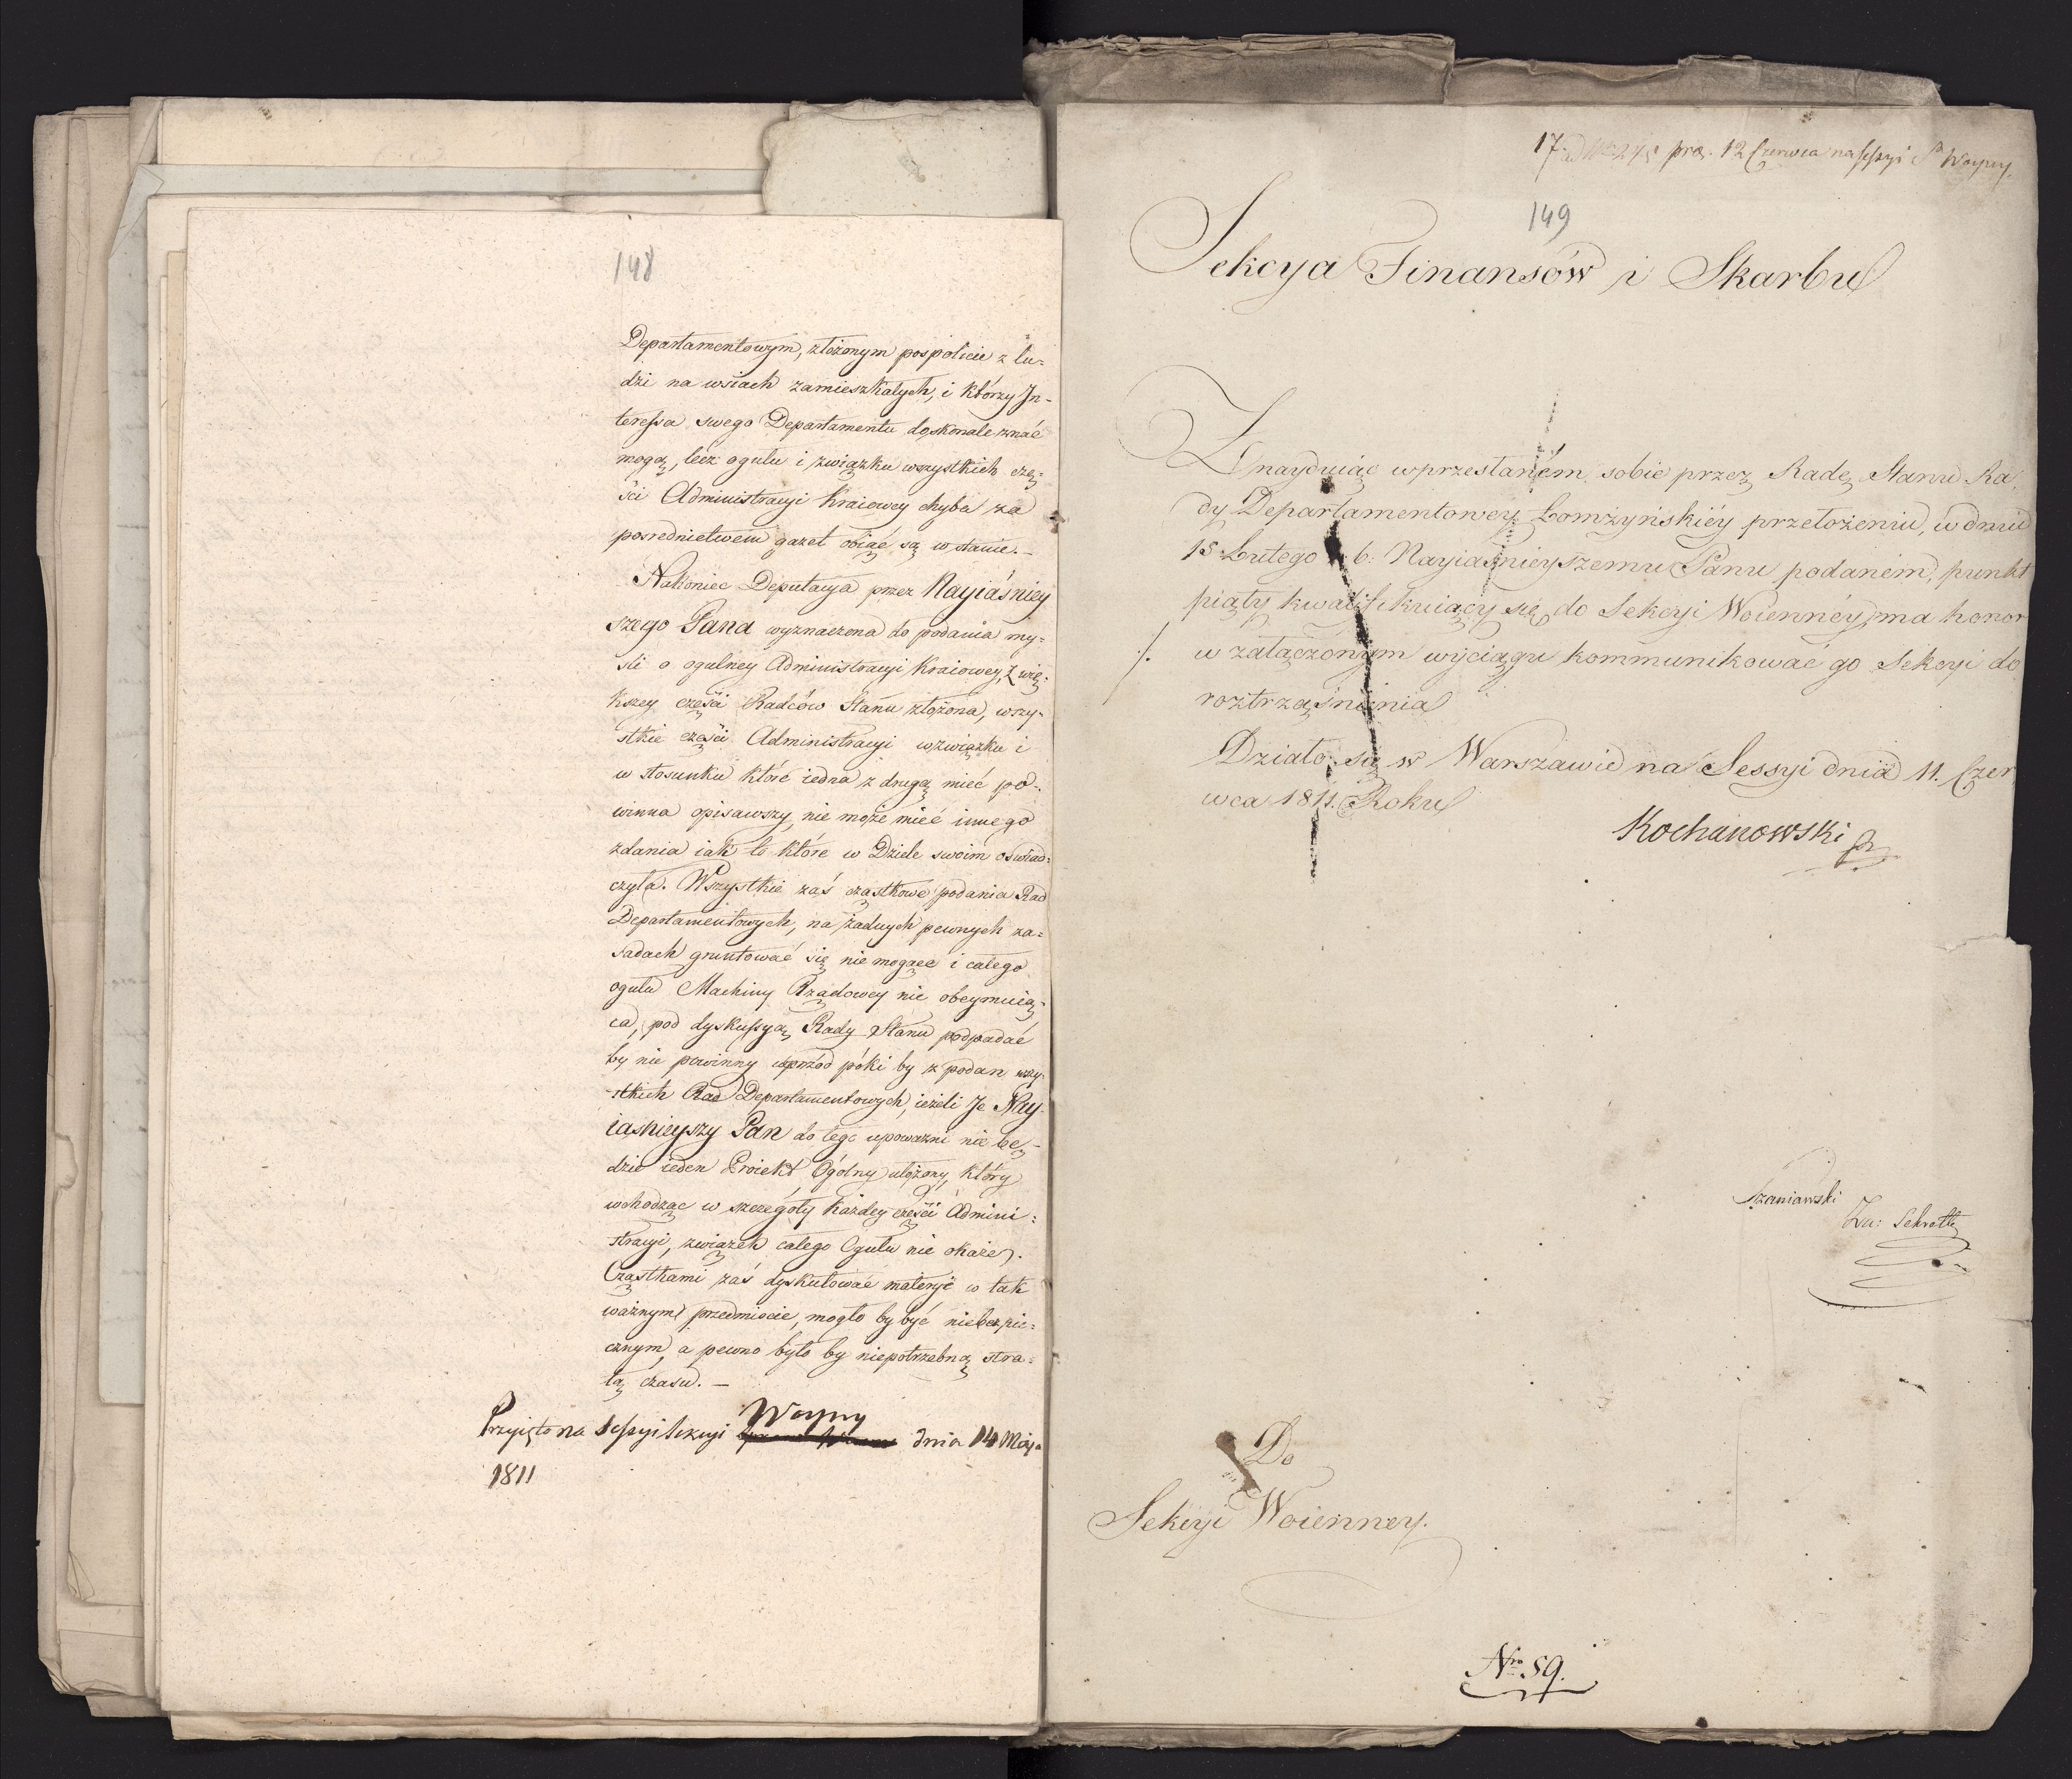 148
Departamentowym, złożonym pospolicie z lu=
dzi na wsiach zamieszkałych, i którzy In-
teressa swego Departamentu doskonale znać
mogą, lecz ogułu i związku wszystkich czę=
ści Administracyi Kraiowey chyba za
posrednictwem gazet obiąć są w stanie. _
Nakoniec Deputacya przez Nayiaśniey
szego Pana wyznaczona do podania my=
śli o ogulney Administracyi Kraiowey, z wię=
kszey części Radców Stanu złożona, wszy=
stkie części Administracyi w związku i
w stosunku które iedna z drugą mieć po=
winna opisawszy, nie może mieć innego
zdania iak to które w Dziele swoim oswiad=
czyła. Wszystkie zaś cząstkowe podania Rad
Departamentowych, na żadnych pewnych za=
sadach gruntować się nie mogące i całego
ogułu Machiny Rządowey nie obeymuią=
ca, pod dyskussyą Rady Stanu podpadać
by nie powinny wprzód póki by z podan wszy=
stkich Rad Departamentowych, ieżeli Je Nay
iaśnieyszy Pan do tego upoważni nie bę=
dzie ieden Proiekt Ogólny ułożony, który
wchodząc w szczegóły każdey części Admini=
stracyi, związek całego Ogułu nie okaże.
Cząstkami zaś dyskutować materye w tak
ważnym przedmiocie, mogło by być niebezpie=
cznym, a pewno było by niepotrzebną stra=
tą czasu. _
Woyny
Przyięto na Sessyi Sekcyi dnia 14 Maja
1811
17 præs. 12 Czerwca na sessyi Woyny.
149
Sekcya Finansów i Skarbu
Znayduiąc w przesłaném sobie przez Radę Stanu Ra
dy Departamentowey Łomżyńskiéy przełożeniu, w dniu
15 Lutego r. b. Nayiaśnieyszemu Panu podaném, punkt
piąty kwalifikuiący się do Sekcyi Woiennéy, ma honor
./. w załączonym wyciągu kommunikować go Sekcyi do
roztrząśnienia
Działo się w Warszawie na Sessyi dnia 11. Czer
wca 1811. Roku
Kochanowski
Szaniawski
Za: Sekrett
Do
Sekcyi Woienney.
Nro 59.